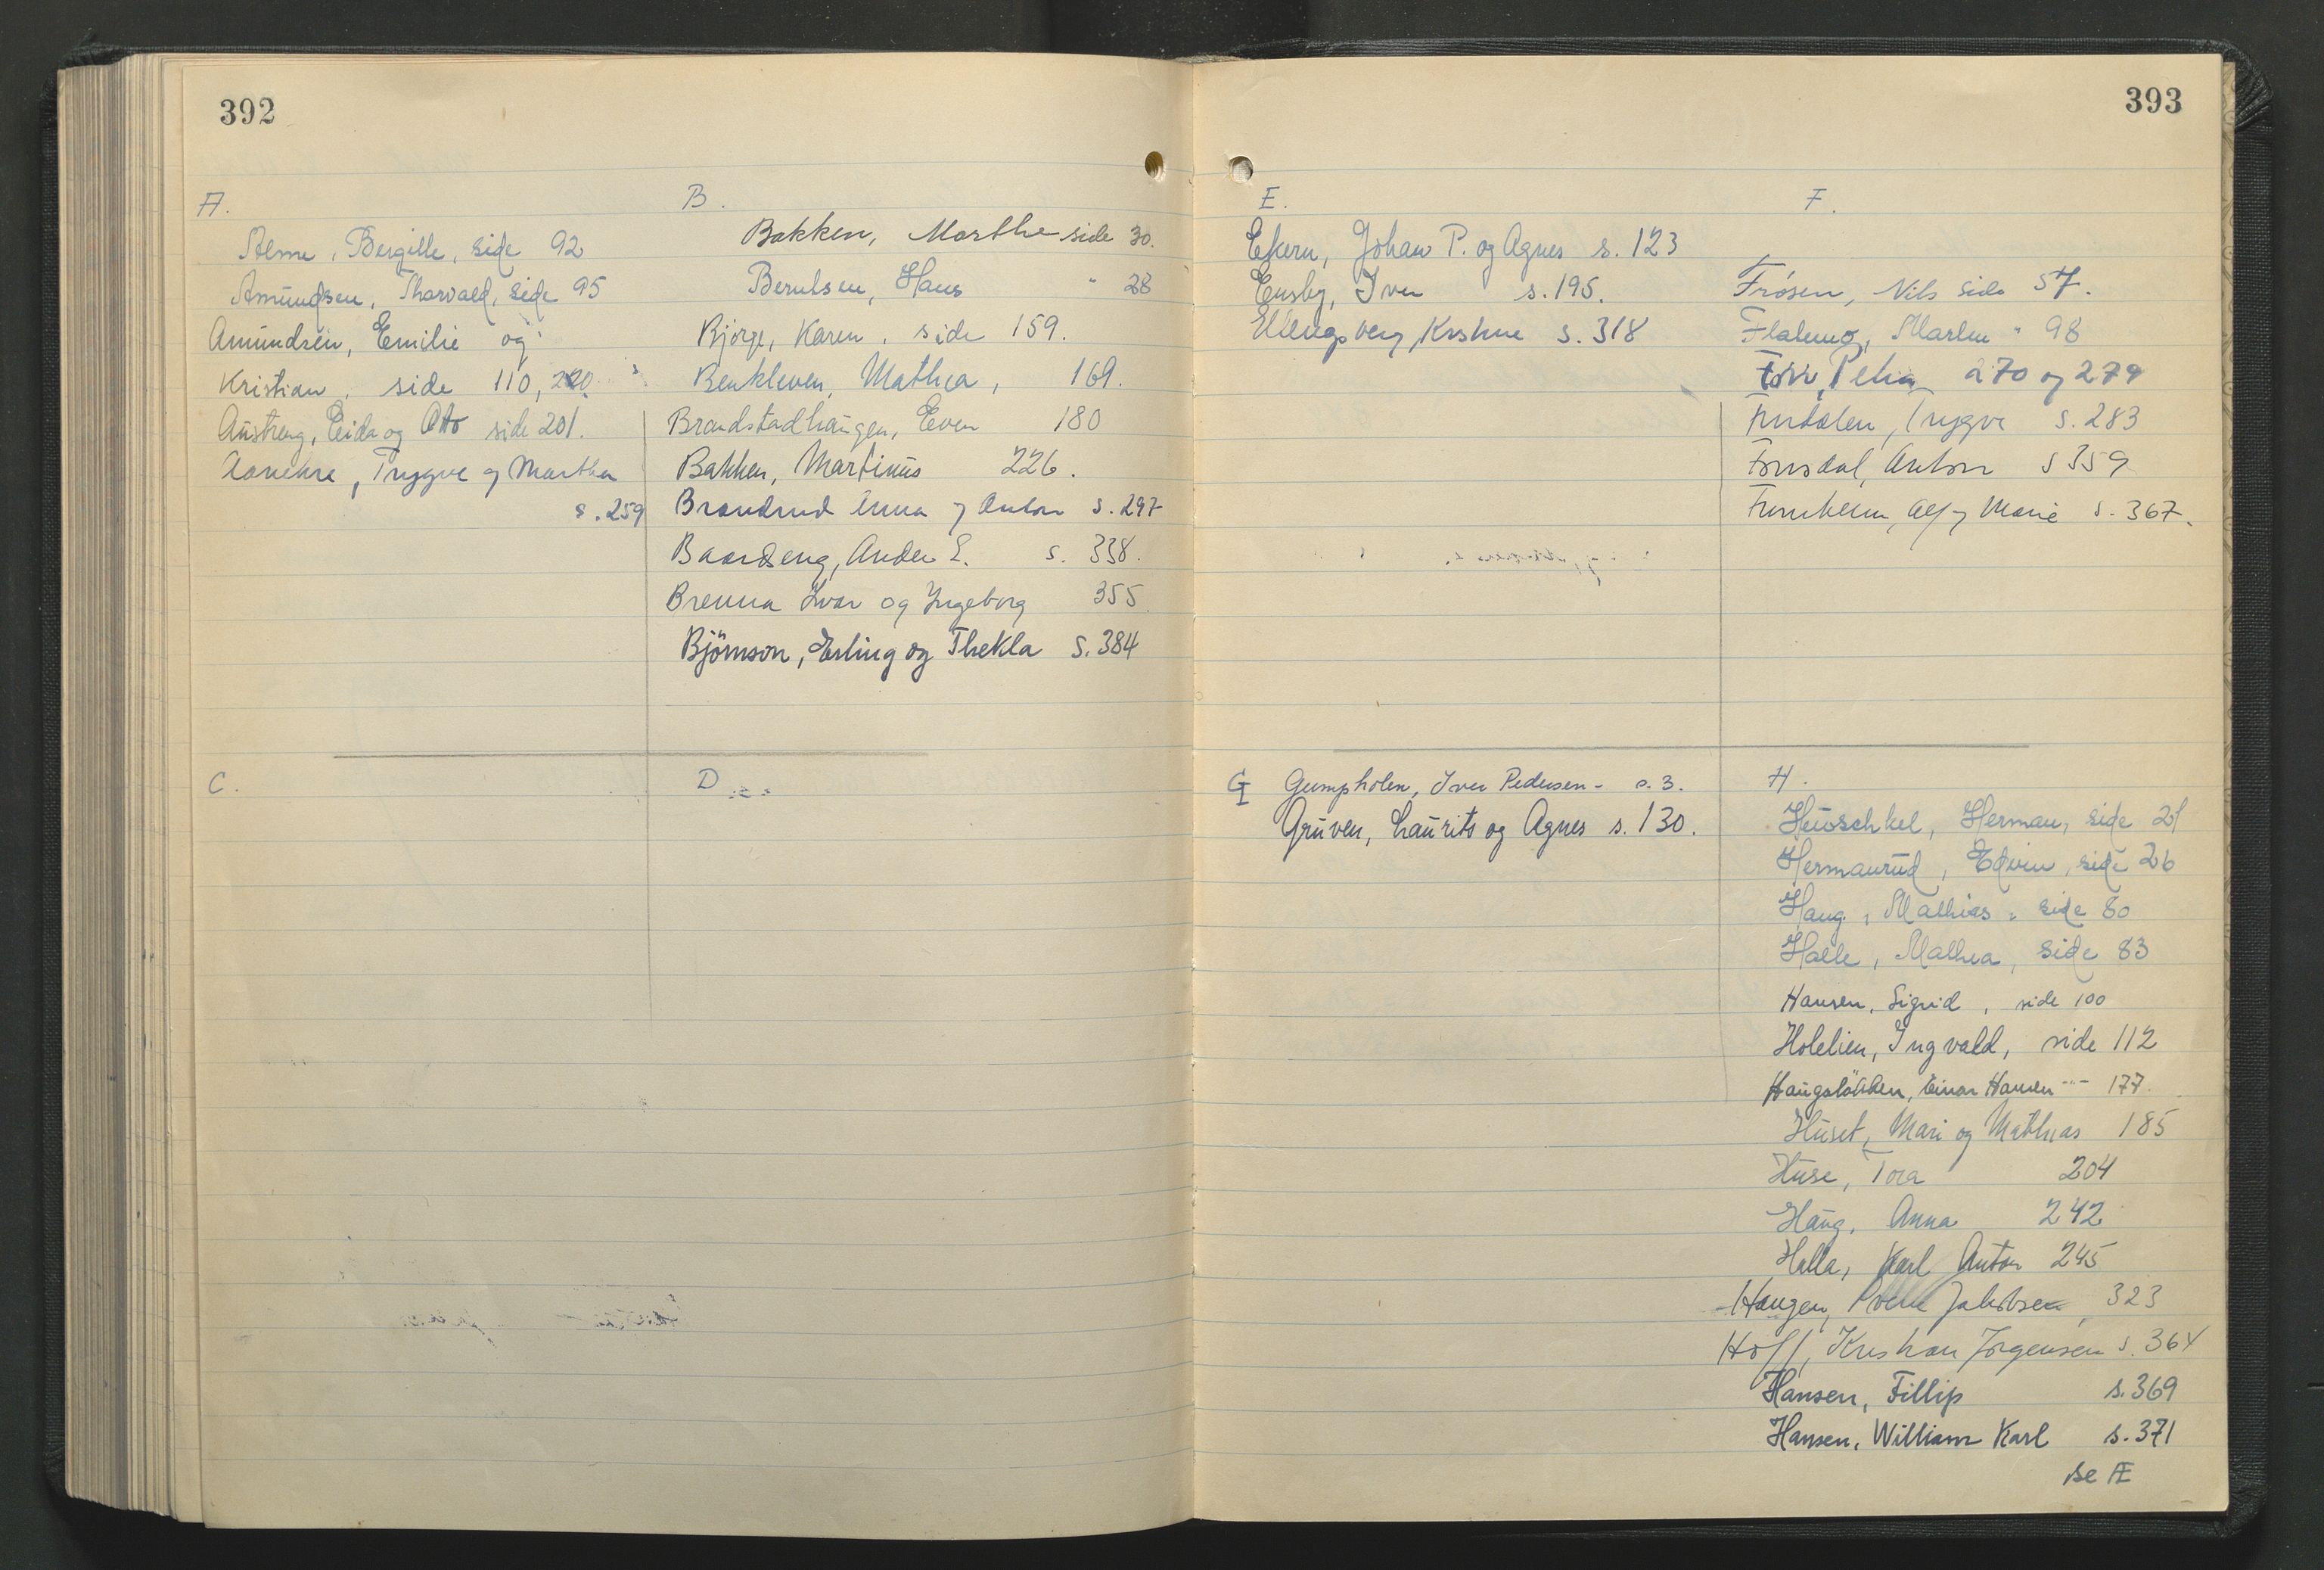 392
A.
Alme, Bergitte, side 92
Amundsen, Thorvald, side 95
Amundsen, Emilie og
Kristian, side 110, 220.
Austreng, Eida og Otto side 201.
Trygve og Marthea
s. 259
B.
Bakken, Marthe side 30.
Berntsen, Hans " 28
Bjørge, Karen, side 159.
Benkleven, Mathea, 169.
Brandstadhaugen, Even 180
Bakken, Martinus 226.
Brandrud Anna og Anton s. 297
Baardseng, Anders E. s. 338.
Brenna Ivar og Ingeborg 355.
Björnson, Erling og Thekla S. 384
C.
D
393
E.
Ekern, Johan P. og Agnes s. 123
Ensby, Iver s. 195.
Ellingsberg, Kristine s. 318
F.
Frøsen, Nils side 57.
98
270 og 279
Trygve s. 283
Anton s 359
Furuheim, Alf og Marie s. 367.
G
Gumpholen, Iver Pedersen - s. 3.
Gruven, Laurits og Agnes s. 130.
H.
Heuschkel, Herman, side 21
Hermanrud, Edvin, side 26
Haug, Mathias, side 80
Halle, Mathea, side 83
Hansen, Sigrid, side 100
Holelien, Ingvald, side 112
Haugsløkken, Einar Hansen -"- 177.
Huset, Mari og Mathias 185
Huse, Tora 204
Haug, Anna 242
Halla, Karl Anton 245
Haugen, Jakobsen, 323
Hoff, Kristian Jørgensen s. 364
Hansen, Fillip s. 369
Hansen, William Karl s. 371
se Æ